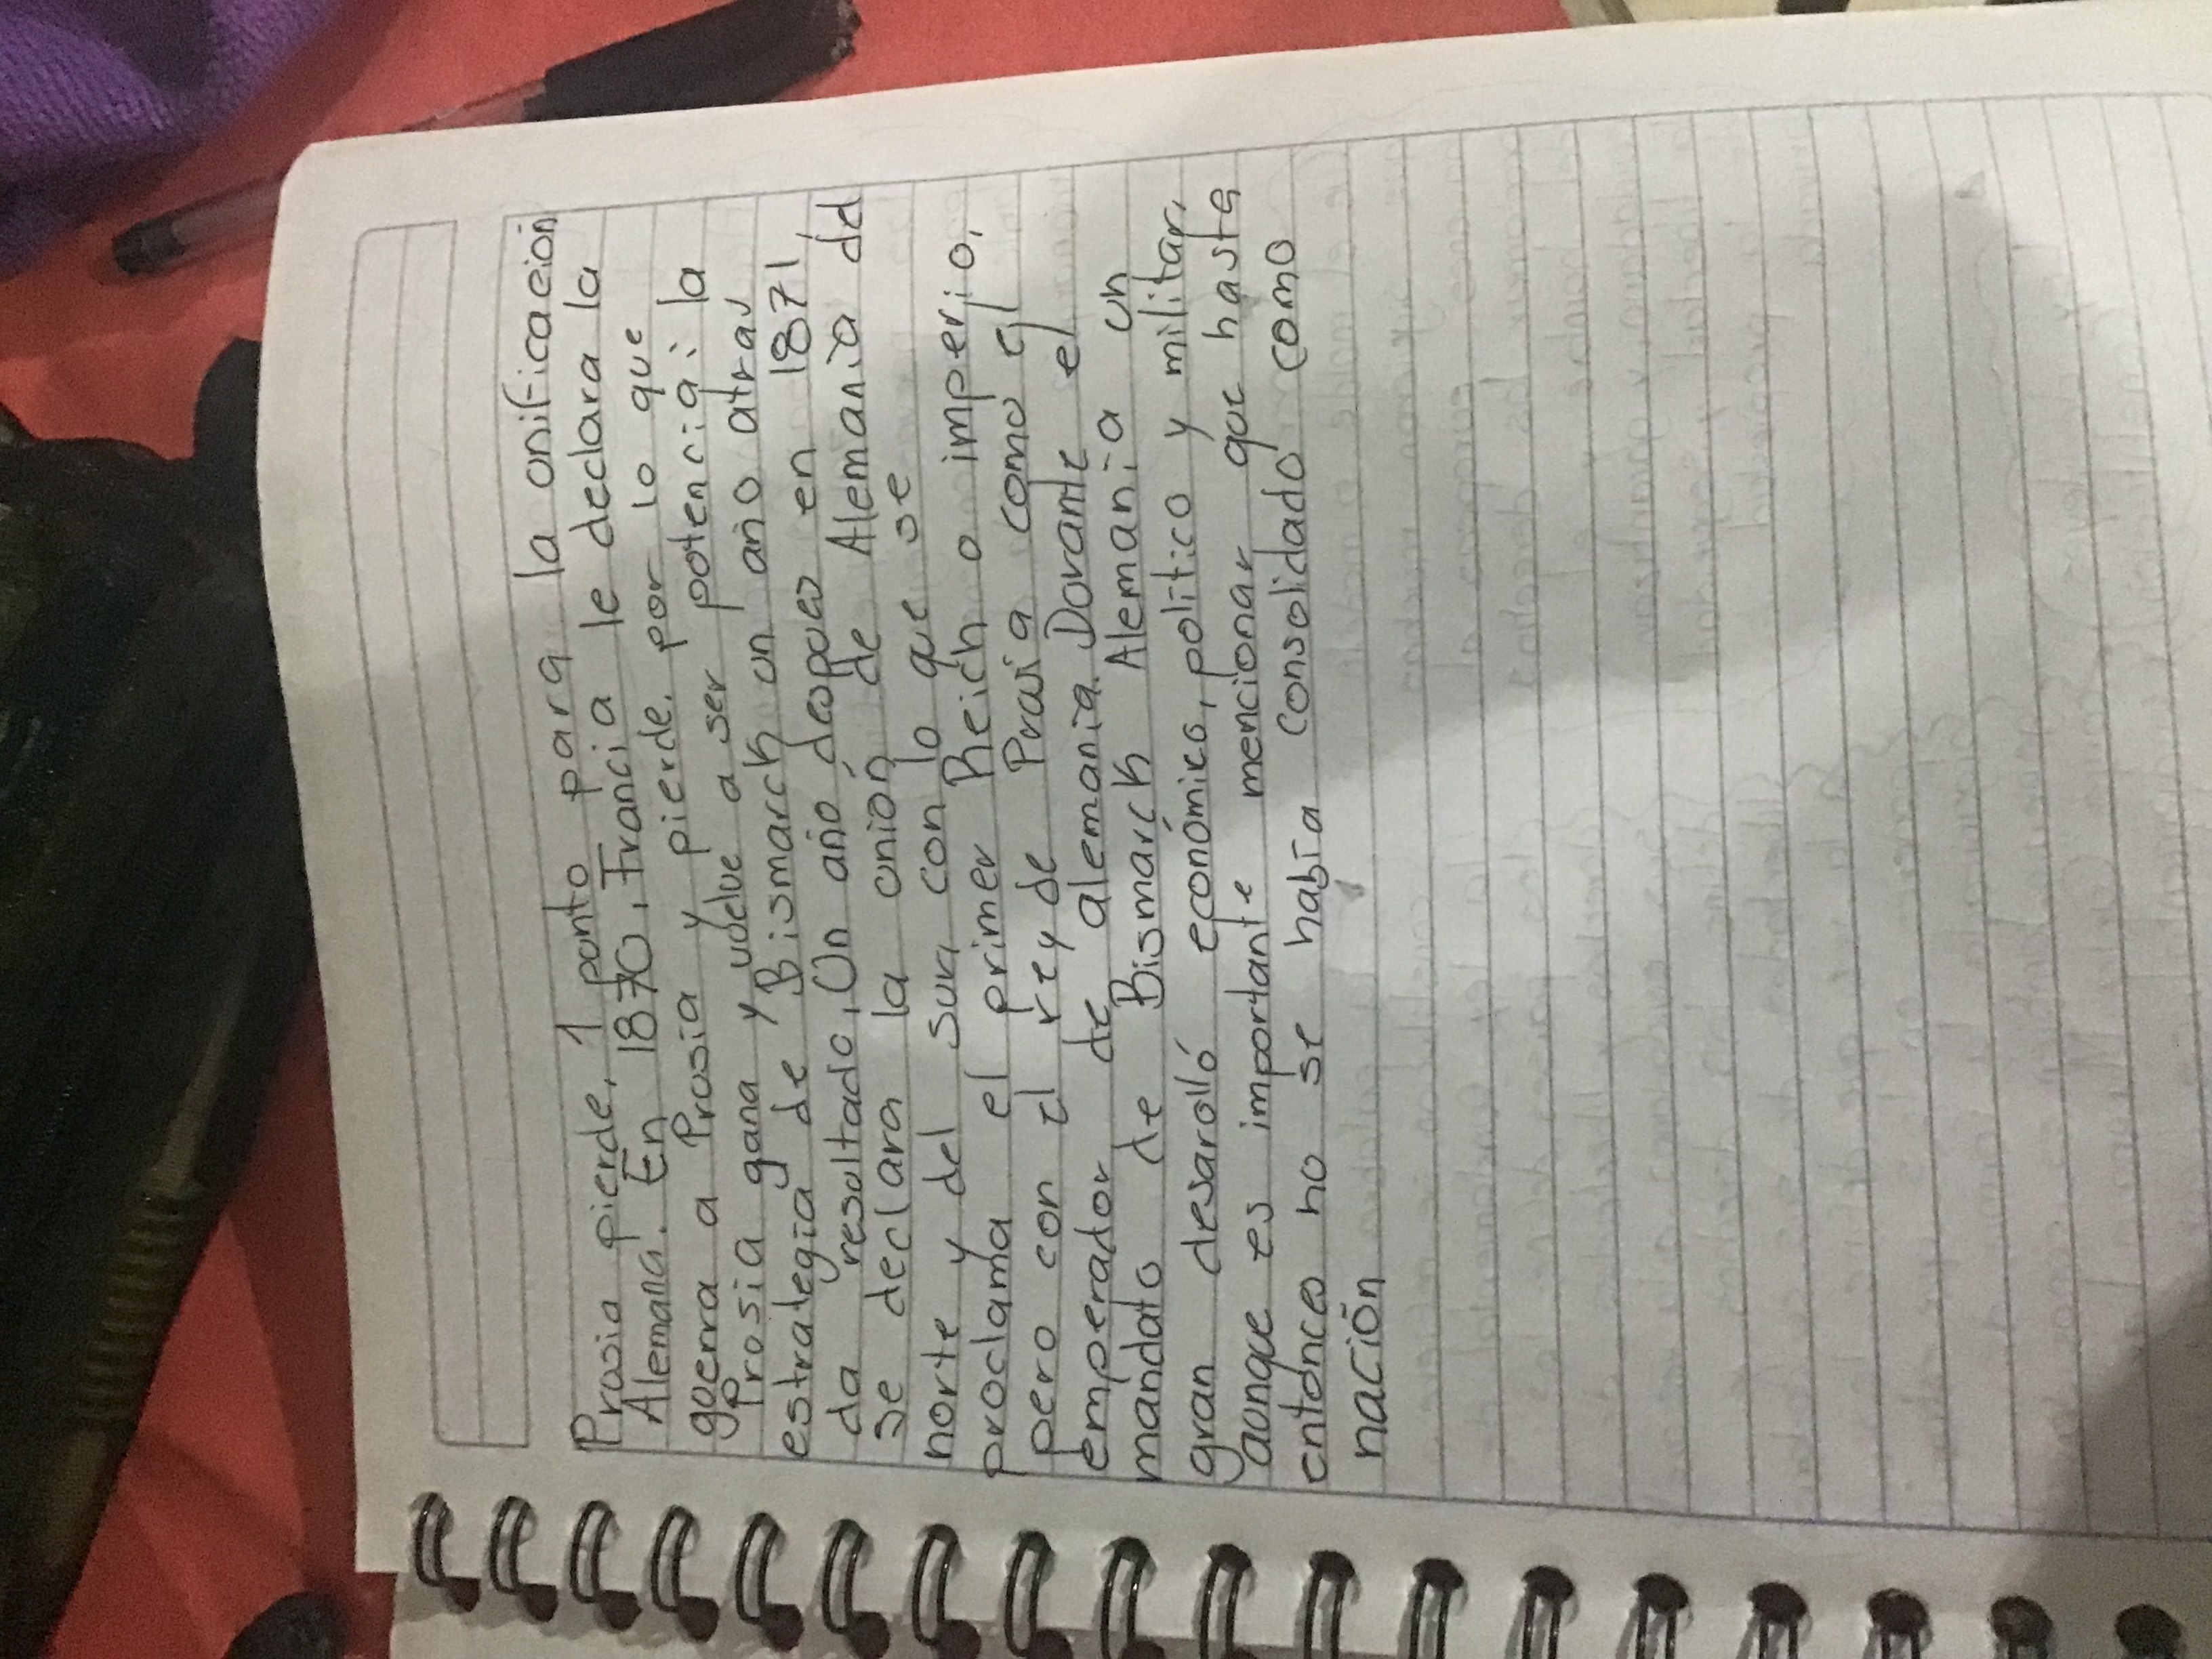 Prusia pierde, 1 punto para la unificación
Alemana. En 1870, Francia le declara la
guerra a Prusia y pierde, por lo que
Prusia gana y vuelve a ser potencia; la
estrategia de Bismarck un año atras
da resultado, Un año despues en 1871
se declara la unión de Alemania del
norte y del sur, con lo que se
proclama el primer Reich o imperio,
pero con el rey de Prusia como el
emperador de alemania. Durante el
mandato de Bismarck Alemania un
gran desarolló económico, politico y militar,
aunque es importante mencionar que hasta
entonces no se había consolidado como
nación